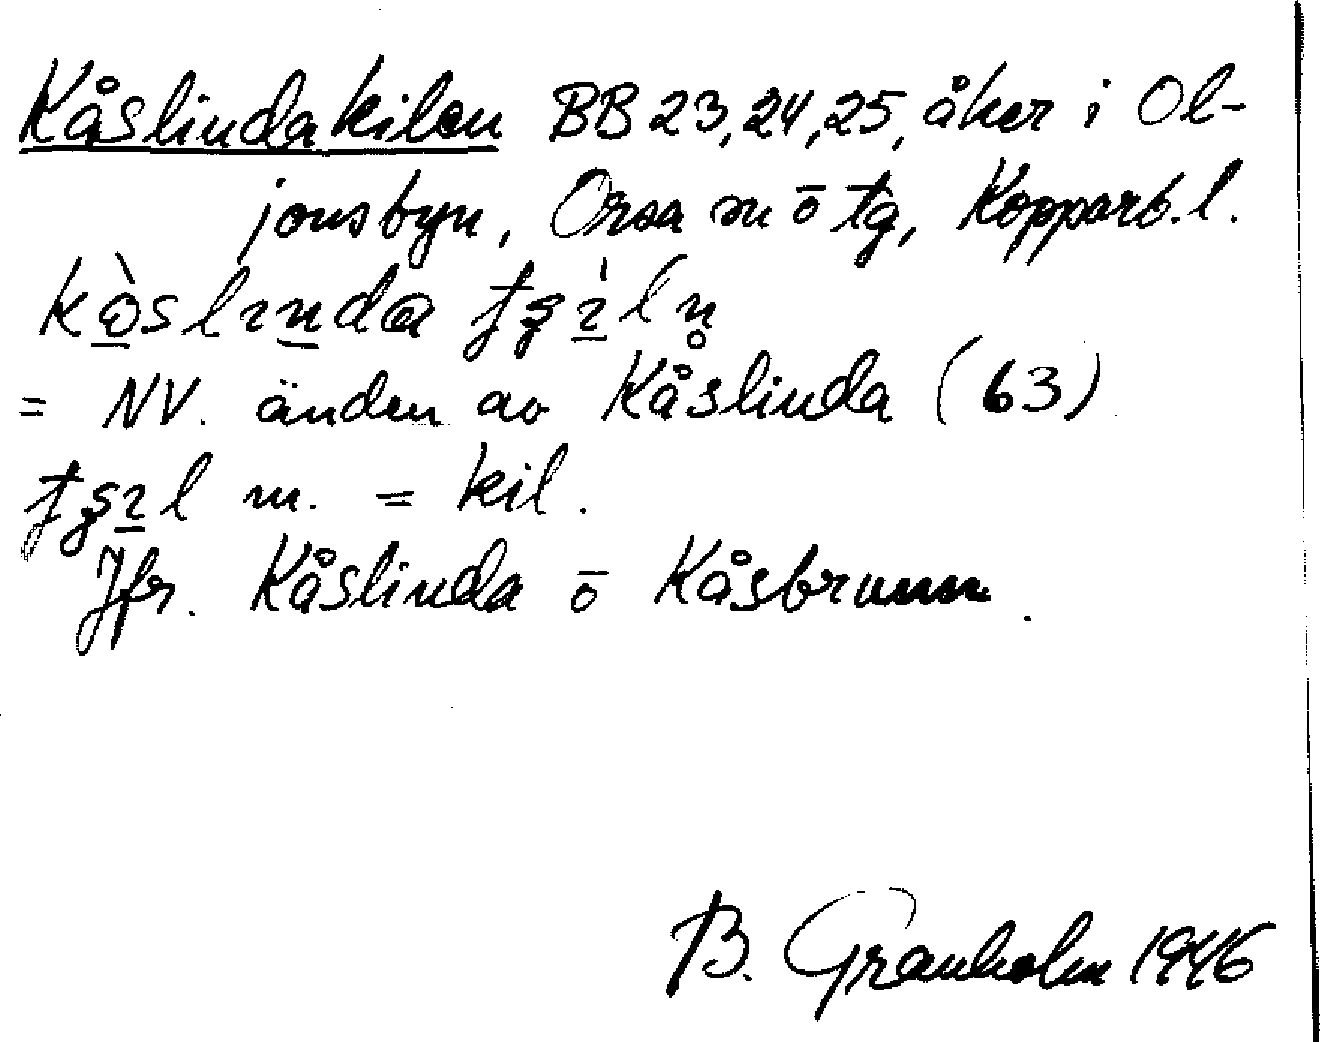 Kåslindakilen BB 23, 24, 25, åker i Ol-
jonsbyn, Orsa sn ō tg, Kopparb. l.
kò̱slın̲da ẜʒı̲̀ln̥
= NV. änden av Kåslinda (63)
m. = kil.
Jfr. Kåslinda ō Kåsbrunn.
B. Granholm 1946